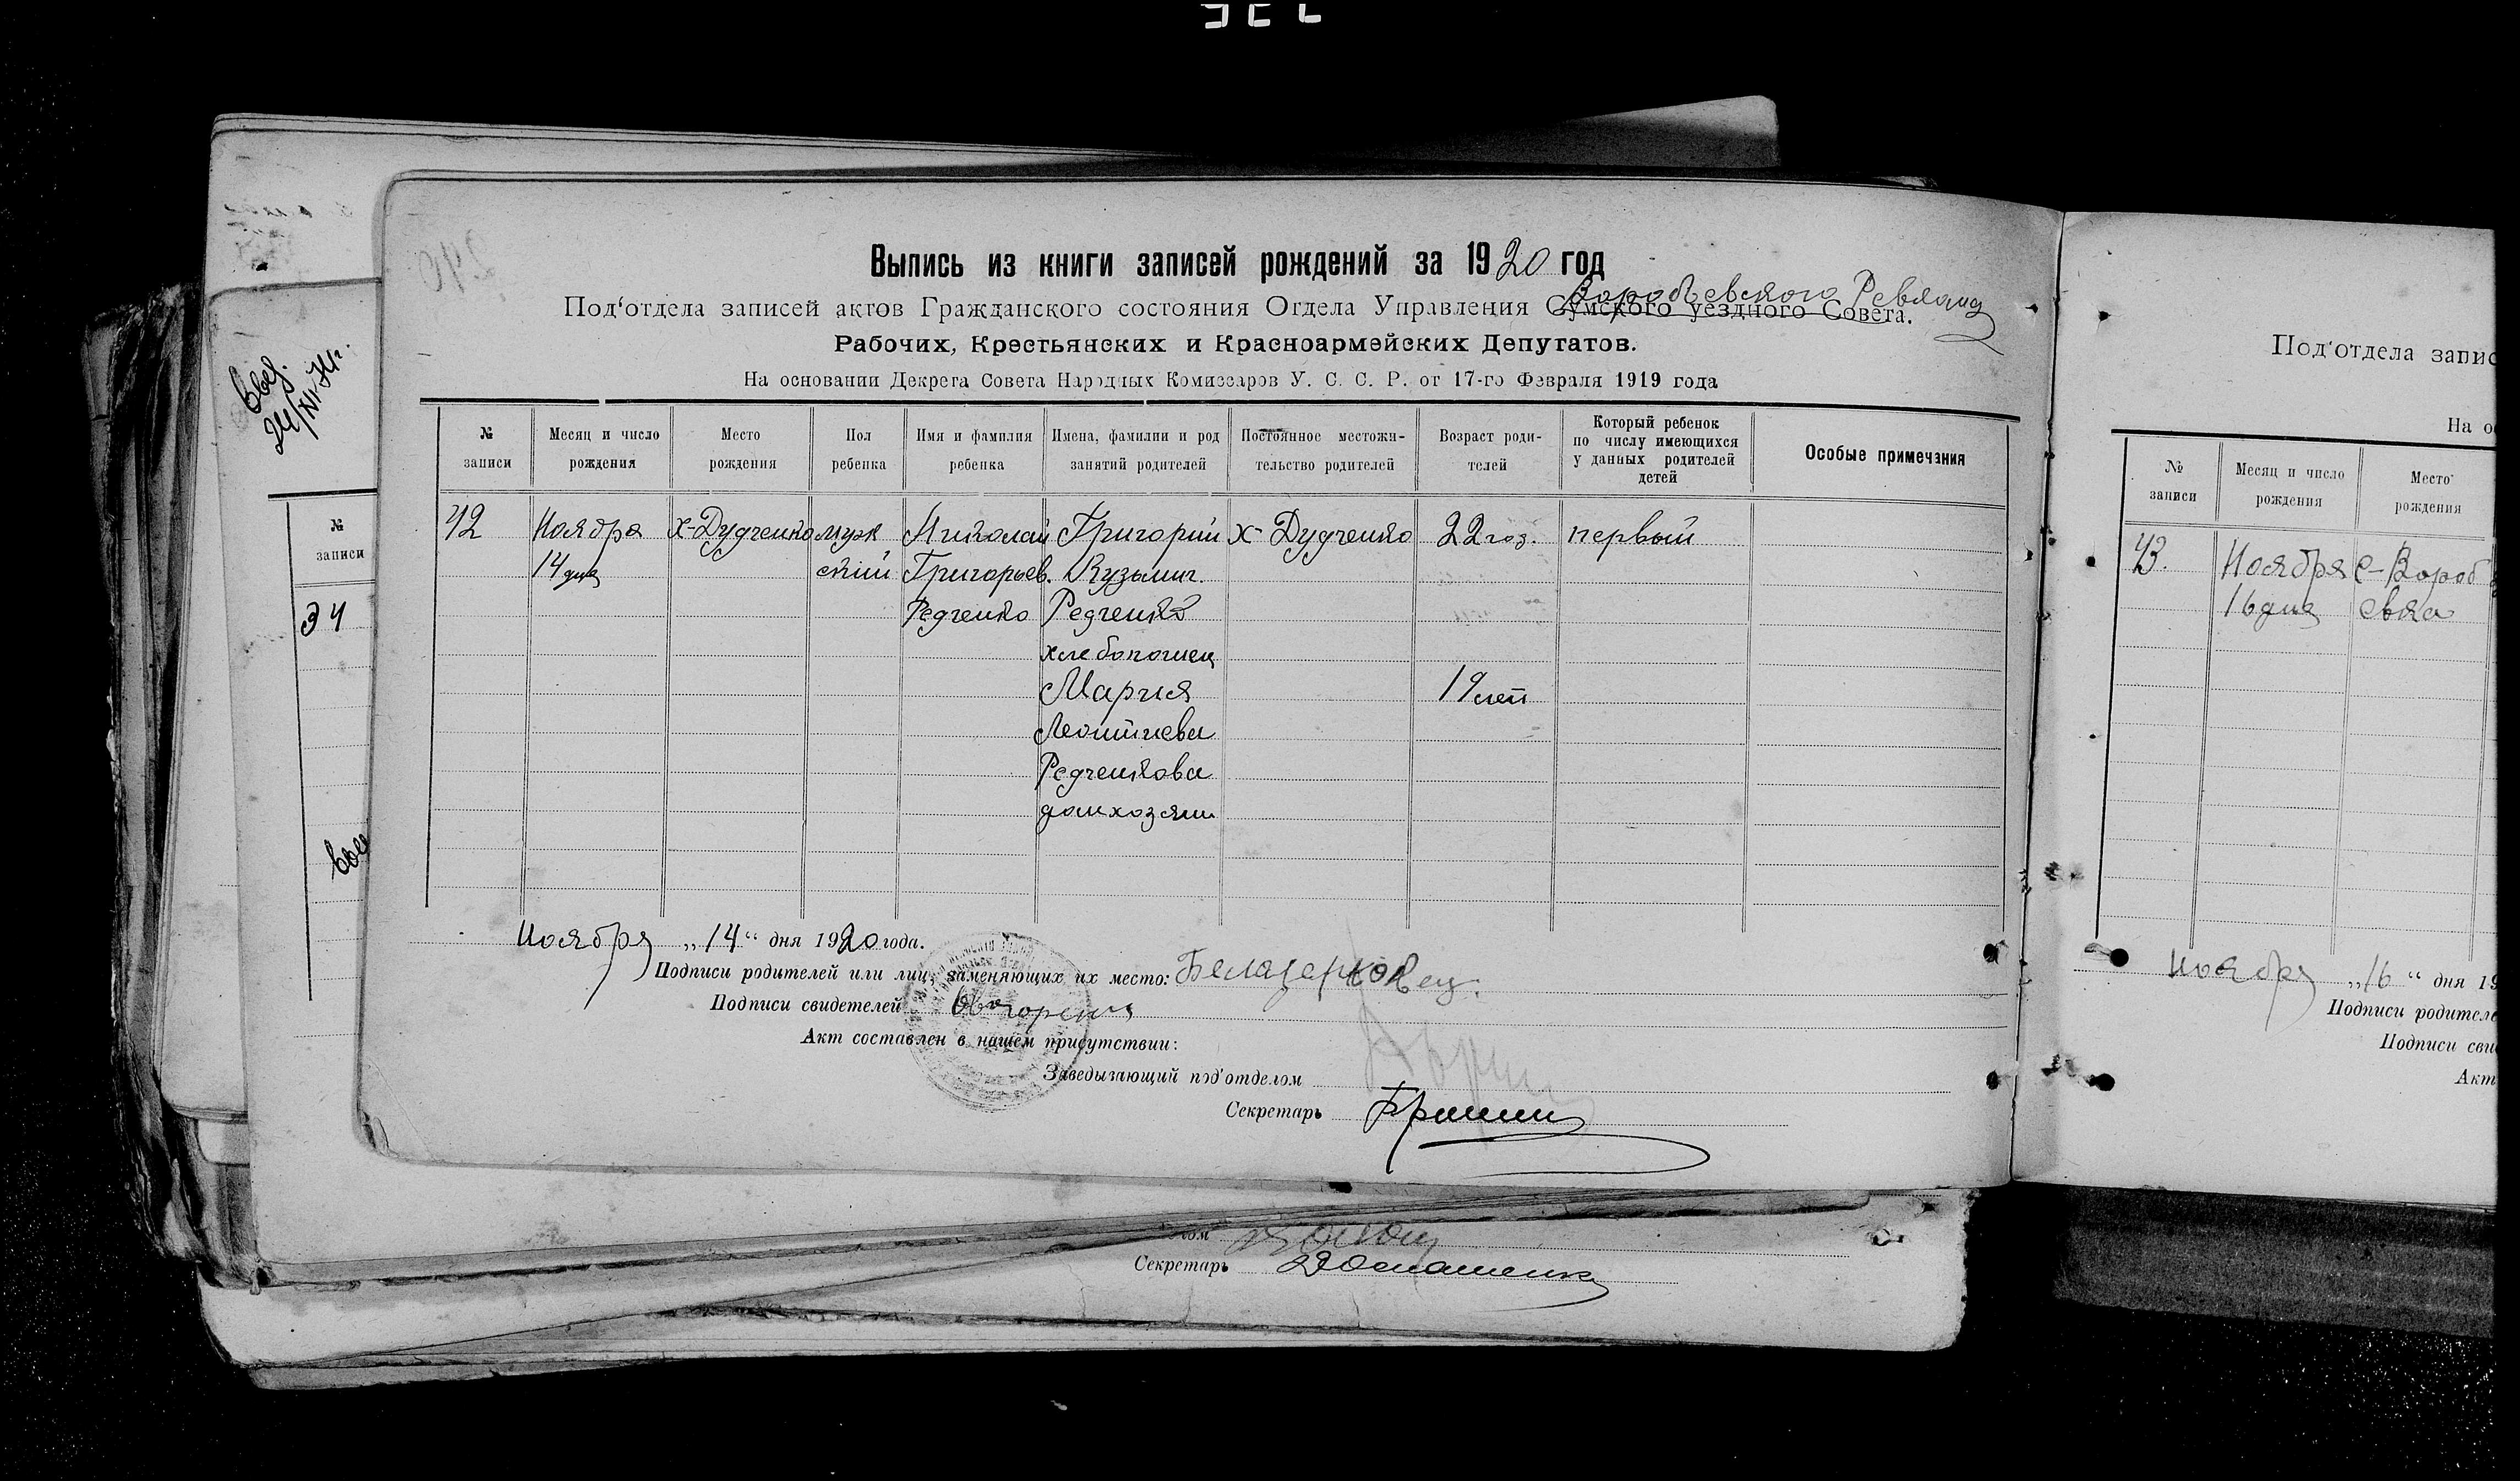 Ввод.
24/XI 74г.
№
записи
34
Вып
Выпись из книги записей рождений за 1920 год
Воробьевского Ревкома
Под‘отдела записей актов Гражданского состояния Отдела Управления Сумского уездного Совета.
Рабочих, Крестьянских и Красноармейских Депутатов.
На основании Декрета Совета Народных Комиссаров У. С. С. Р. от 17-го Февраля 1919 года
№ записи
Месяц и число рождения
Место рождения
Пол ребенка
Имя и фамилия ребенка
Имена, фамилии и род занятий родителей
Постоянное местожительство родителей
Возраст родителей
Который ребенок по числу имеющихся у данных родителей детей
Особые примечания
42 Ноября х-Дудченко муж Николай Григорий х-Дудченко 22 год. первый
14 дня ский Григорьев. Кузьмич.
Редченко Редченко
хлебопашец
Мария 19 лет
Леонтиева
Редченкова
домхозяин
Ноября „14“ дня 1920 года.
Подписи родителей или лиц, заменяющих их место: Белацерковец.
Подписи свидетелей
Акт составлен в нашем присутствии:
Заведывающий под'отделом
Секретарь
ом
Секретарь Домашенко
Под‘отдела запис
На о
№ записи
Месяц и число рождения
Место рождения
43. Ноября с-Вороб
16 дня евка
Ноября „16“ дня 19
Подписи родителе
Подписи сви
Акт